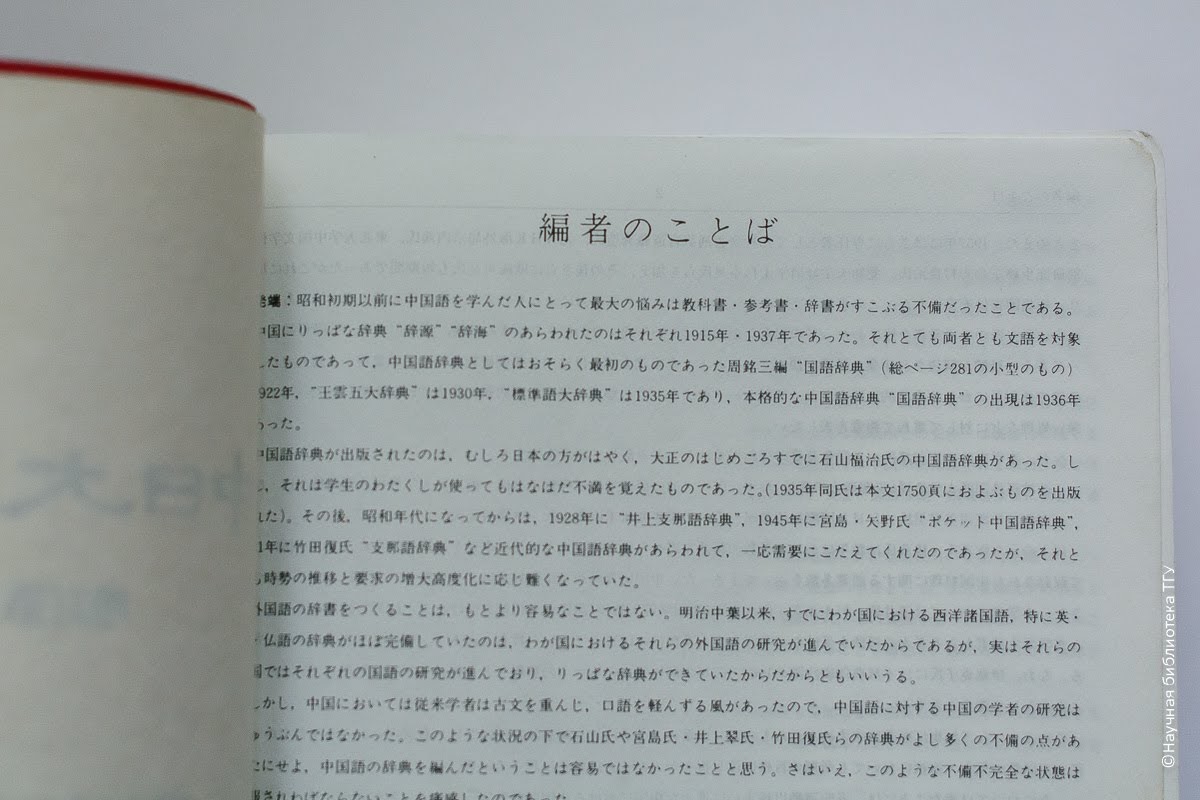 編者のことば
端：昭和初期以前に中国語を学んだ人にとって最大の悩みは教科書・参考書・辞書がすこぶる不備だったことである。
国にりっぱな辞典“辞源”“辞海”のあらわれたのはそれぞれ1915年・1937年であった。それとても両者とも文語を対象
したものであって，中国語辞典としてはおそらく最初のものであった周銘三編“国語辞典”（総ページ281の小型のもの）
922年，“王雲五大辞典”は1930年，“標準語大辞典”は1935年であり，本格的な中国語辞典“国語辞典”の出現は1936年
った。
中国語辞典が出版されたのは，むしろ日本の方がはやく，大正のはじめごろすでに石山福治氏の中国語辞典があった。し
，それは学生のわたくしが使ってもはなはだ不満を覚えたものであった。（1935年同氏は本文1750頁におよぶものを出版
れた）。その後，昭和年代になってからは，1928年に“井上支那語辞典”，1945年に宮島・矢野氏“ポケット中国語辞典”，
1年に竹田復氏“支那語辞典”など近代的な中国語辞典があらわれて，一応需要にこたえてくれたのであったが，それと
時勢の推移と要求の増大高度化に応じ難くなっていた。
外国語の辞書をつくることは，もとより容易なことではない。明治中葉以来，すでにわが国における西洋諸国語，特に英・
仏語の辞典がほぼ完備していたのは，わが国におけるそれらの外国語の研究が進んでいたからであるが，実はそれらの
国ではそれぞれの国語の研究が進んでおり，りっぱな辞典ができていたからだからともいいうる。
かし，中国においては従来学者は古文を重んじ，口語を軽んずる風があったので，中国語に対する中国の学者の研究は
ゅうぶんではなかった。このような状況の下で石山氏や宮島氏・井上翠氏・竹田復氏らの辞典がよし多くの不備の点があ
にせよ，中国語の辞典を編んだということは容易ではなかったことと思う。さはいえ，このような不備不完全な状態は
されねばならないことを痛感したのであった
©Научная библиотека ТГУ